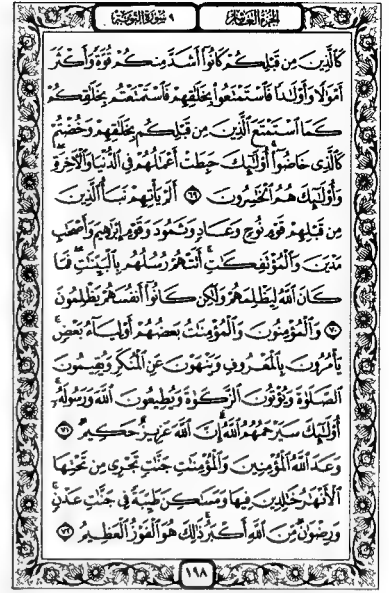 الجزء العاشر
٩ سورة التوبة
كَالَّذِينَ مِن قَبْلِكُمْ كَانُوٓا۟ أَشَدَّ مِنكُمْ قُوَّةً وَأَكْثَرَ
أَمْوَٰلًا وَأَوْلَـٰدًا فَٱسْتَمْتَعُوا۟ بِخَلَـٰقِهِمْ فَٱسْتَمْتَعْتُم بِخَلَـٰقِكُمْ
كَمَا ٱسْتَمْتَعَ ٱلَّذِينَ مِن قَبْلِكُم بِخَلَـٰقِهِمْ وَخُضْتُمْ
كَٱلَّذِى خَاضُوٓا۟ أُو۟لَـٰٓئِكَ حَبِطَتْ أَعْمَـٰلُهُمْ فِى ٱلدُّنْيَا وَٱلْـَٔاخِرَةِ
وَأُو۟لَـٰٓئِكَ هُمُ ٱلْخَـٰسِرُونَ ٦٩ أَلَمْ يَأْتِهِمْ نَبَأُ ٱلَّذِينَ
مِن قَبْلِهِمْ قَوْمِ نُوحٍ وَعَادٍ وَثَمُودَ وَقَوْمِ إِبْرَٰهِيمَ وَأَصْحَـٰبِ
مَدْيَنَ وَٱلْمُؤْتَفِكَـٰتِ أَتَتْهُمْ رُسُلُهُم بِٱلْبَيِّنَـٰتِ فَمَا
كَانَ ٱللَّهُ لِيَظْلِمَهُمْ وَلَـٰكِن كَانُوٓا۟ أَنفُسَهُمْ يَظْلِمُونَ
٧٠ وَٱلْمُؤْمِنُونَ وَٱلْمُؤْمِنَـٰتُ بَعْضُهُمْ أَوْلِيَآءُ بَعْضٍ
يَأْمُرُونَ بِٱلْمَعْرُوفِ وَيَنْهَوْنَ عَنِ ٱلْمُنكَرِ وَيُقِيمُونَ
ٱلصَّلَوٰةَ وَيُؤْتُونَ ٱلزَّكَوٰةَ وَيُطِيعُونَ ٱللَّهَ وَرَسُولَهُۥٓ
أُو۟لَـٰٓئِكَ سَيَرْحَمُهُمُ ٱللَّهُ إِنَّ ٱللَّهَ عَزِيزٌ حَكِيمٌ ٧١
وَعَدَ ٱللَّهُ ٱلْمُؤْمِنِينَ وَٱلْمُؤْمِنَـٰتِ جَنَّـٰتٍ تَجْرِى مِن تَحْتِهَا
ٱلْأَنْهَـٰرُ خَـٰلِدِينَ فِيهَا وَمَسَـٰكِنَ طَيِّبَةً فِى جَنَّـٰتِ عَدْنٍ
وَرِضْوَٰنٌ مِّنَ ٱللَّهِ أَكْبَرُ ذَٰلِكَ هُوَ ٱلْفَوْزُ ٱلْعَظِيمُ ٧٢
١٩٨